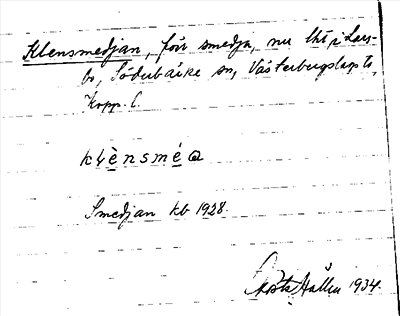 Klensmedjan, förr smedja, nu lht i Lars-
bo, Söderbärke sn, Västerbergslags ts,
Kopp. l.
Smedjan kb 1928.
Gösta Hällen 1934.